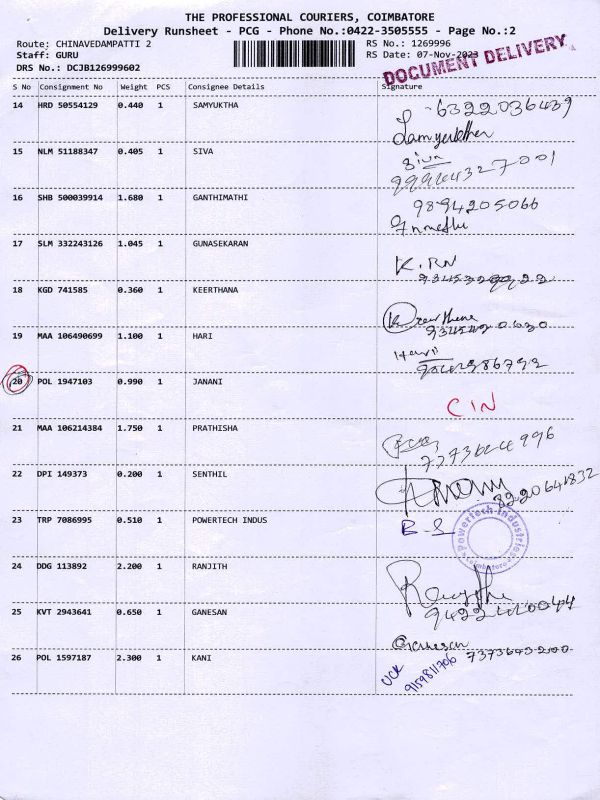 THE PROFESSIONAL COURIERS, COIMBATORE
Delivery Runsheet - PCG - Phone No.:0422-3505555 - Page No.:2
Route: CHINAVEDAMPATTI 2 RS No.: 1269996
Staff: GURU RS Date: 07-Nov-2023
DRS No.: DCJB126999602
DOCUMENT DELIVERY
S No Consignment No Weight PCS Consignee Details Signature
14 HRD 50554129 0.440 1 SAMYUKTHA 6322036439
Samyuktha
15 NLM 51188347 0.405 1 SIVA Siva
16 SHB 500039914 1.680 1 GANTHIMATHI 9894205066
17 SLM 332243126 1.045 1 GUNASEKARAN K.RN
18 KGD 741585 0.360 1 KEERTHANA Keerthana
19 MAA 106490699 1.100 1 HARI Hari
20 POL 1947103 0.990 1 JANANI CIN
21 MAA 106214384 1.750 1 PRATHISHA
22 DPI 149373 0.200 1 SENTHIL 8220641832
23 TRP 7086995 0.510 1 POWERTECH INDUS B-S
Powertech Industries
Coimbatore
24 DDG 113892 2.200 1 RANJITH
25 KVT 2943641 0.650 1 GANESAN Ganesan
7373643200
26 POL 1597187 2.300 1 KANI